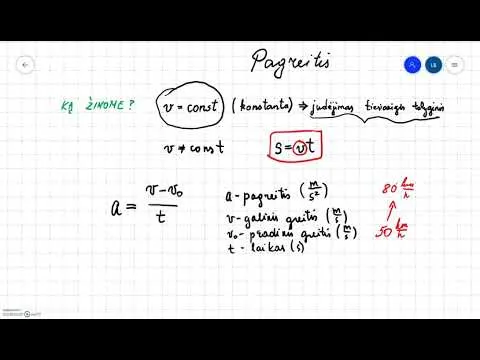 Pagreitis
LB
KĄ ŽINOME? v = const (konstanta) ⇒ judėjimas tiesiaeigis tolyginis
v ≠ const s = vt
a = (v - v₀) / t
a - pagreitis (m/s²)
v - galinis greitis (m/s)
v₀ - pradinis greitis (m/s)
t - laikas (s)
80 km/h
50 km/h